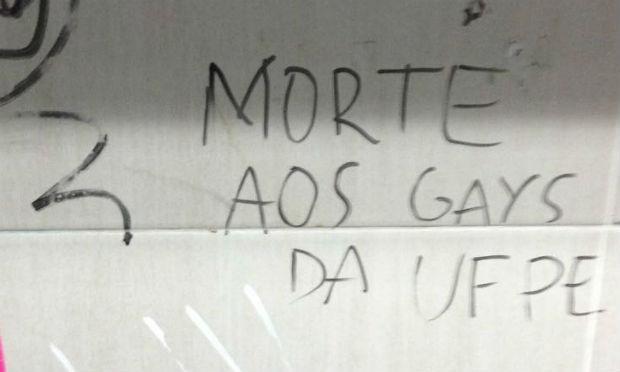 MORTE
AOS GAYS
DA UFPE